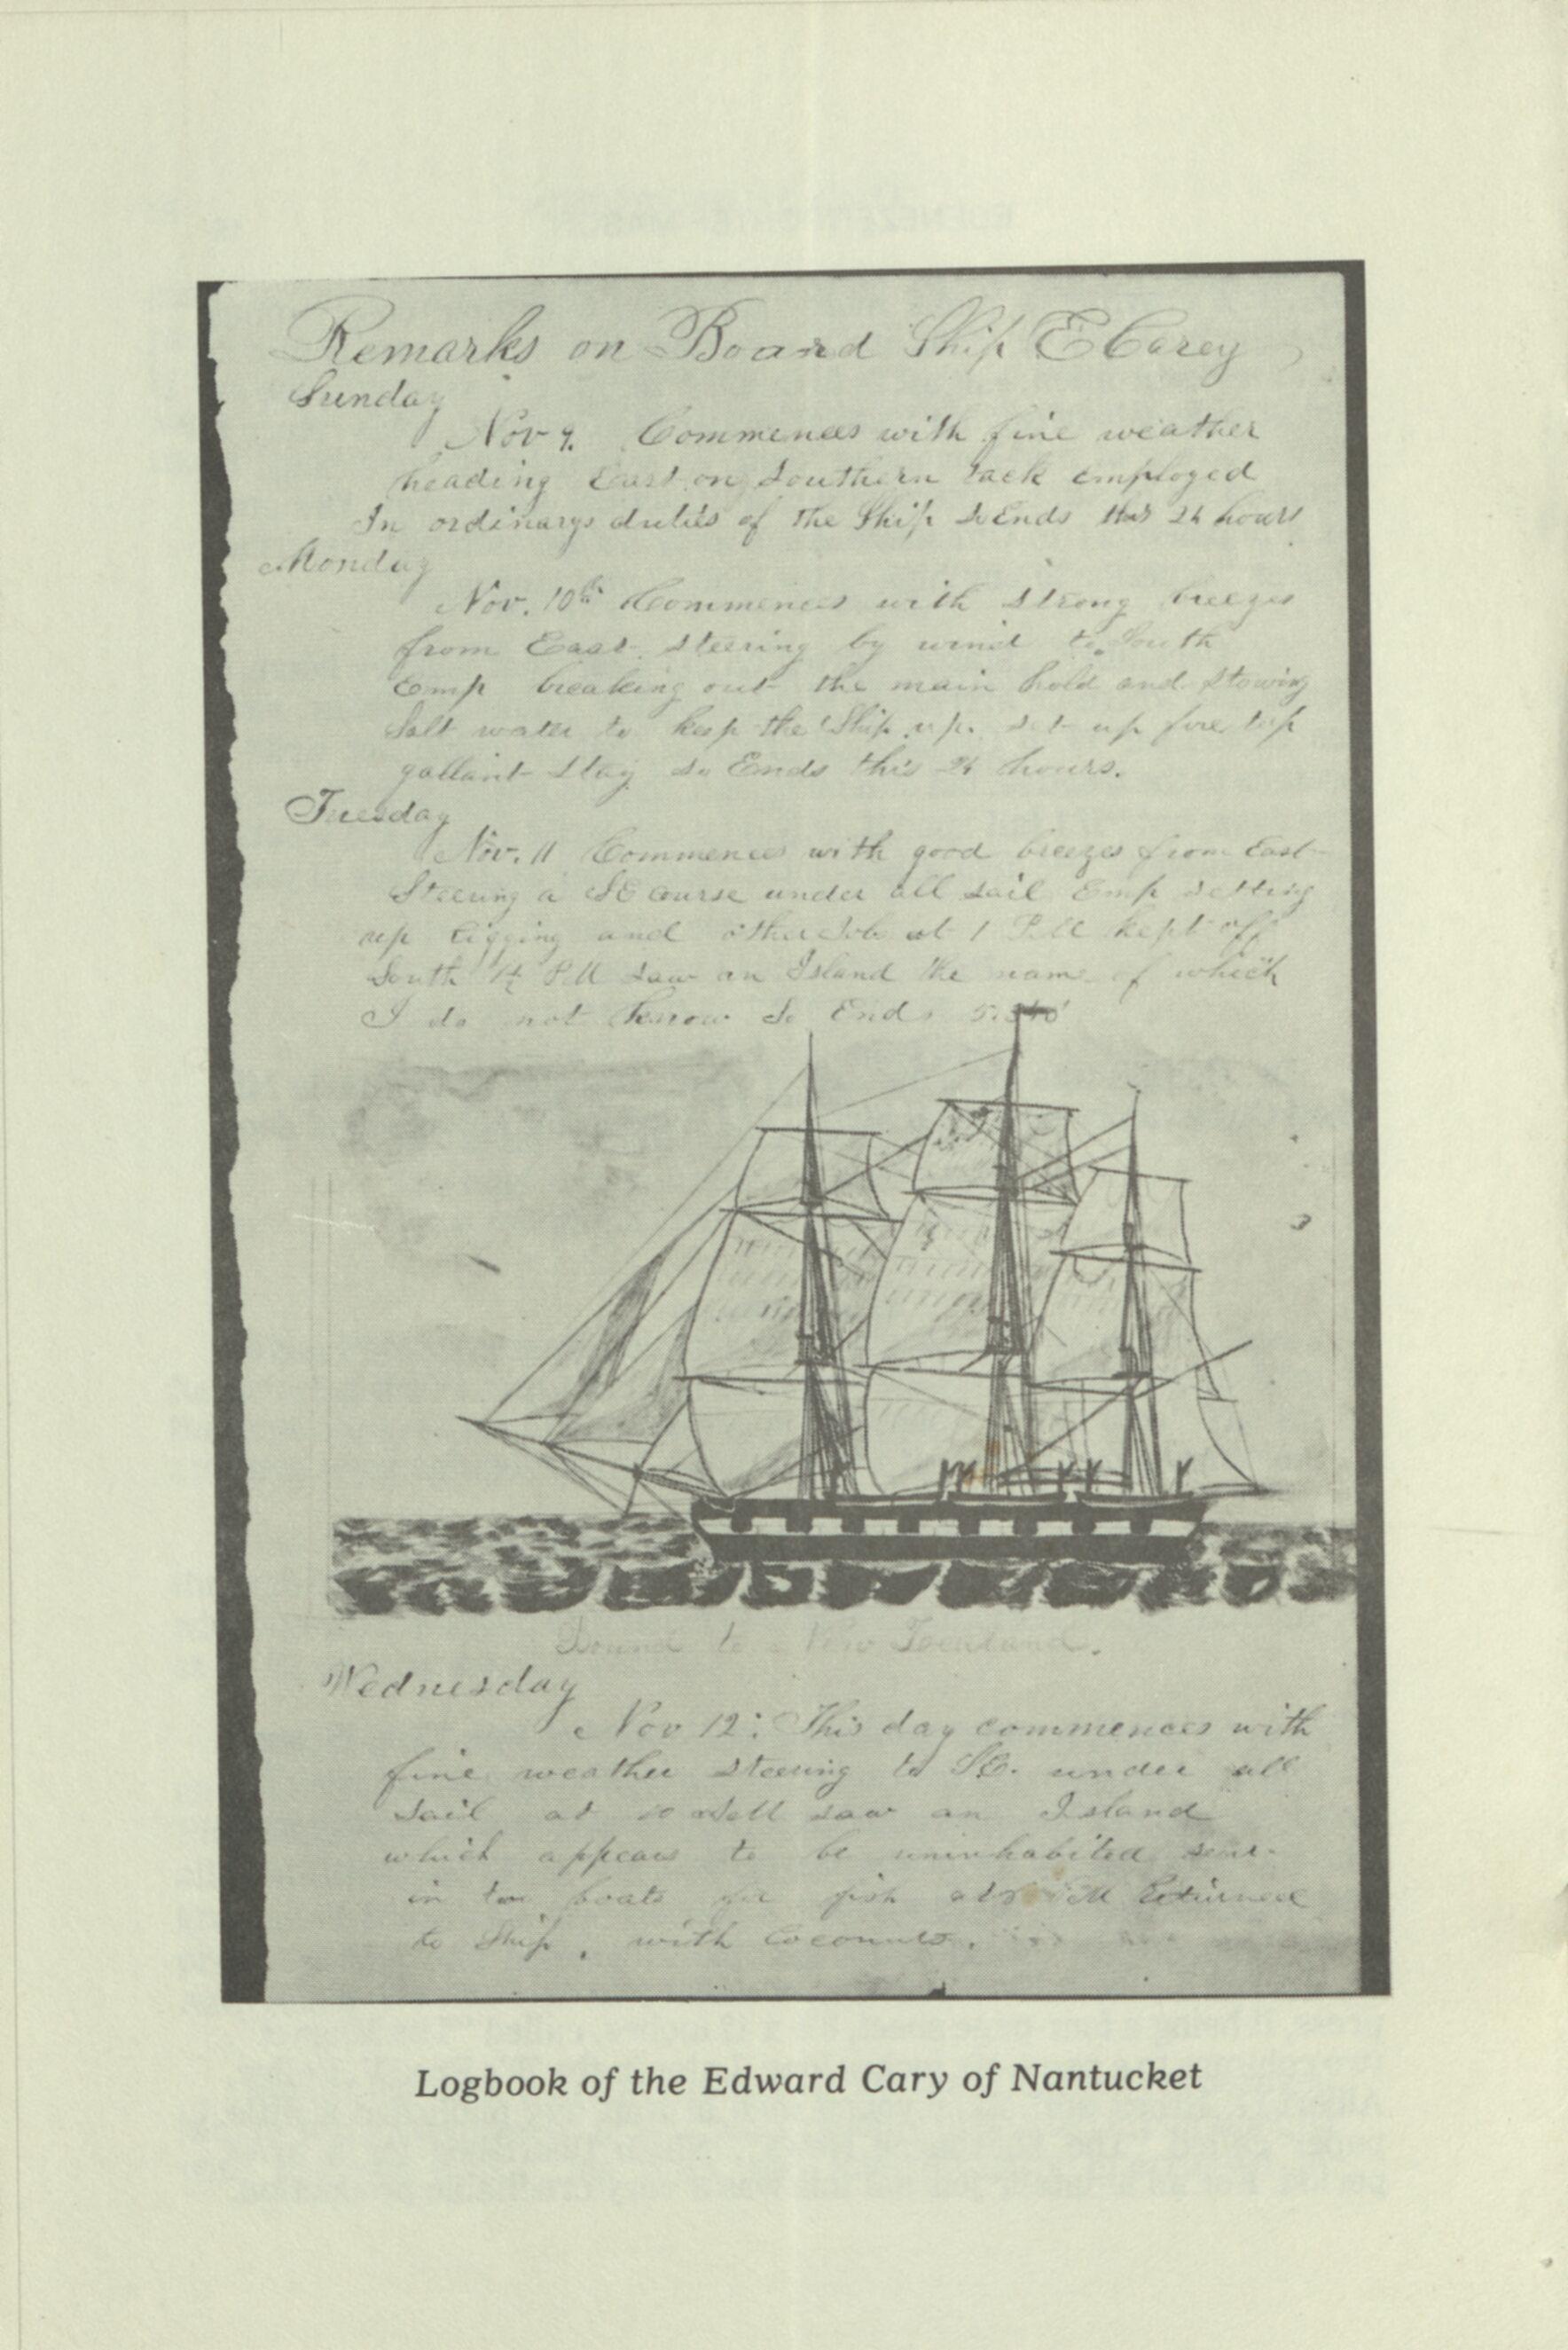 Remarks on Board Ship E Carey
Sunday
Nov 9. Commences with fine weather
heading East on Southern tack employed
In ordinarys duties of the Ship So Ends this 24 hours
Monday
Nov. 10th Commences with strong breezes
from East. steering by wind to South
Emp breaking out the main hold and stowing
Salt water to keep the Ship up. set up fore top
gallant stay so Ends this 24 hours.
Tuesday
Nov. 11 Commences with good breezes from East
Steering a SE course under all sail Emp setting
up rigging and other Jobs at 1 P.M kept off
South PM saw an Island the name of which
I do not know So Ends
Bound to New Zealand.
Wednesday
Nov 12: This day commences with
fine weather steering to SE. under all
sail at 10 saw an Island
which appears to be uninhabited sent
in boats for fish at Returned
to Ship, with Coconuts.
Logbook of the Edward Cary of Nantucket